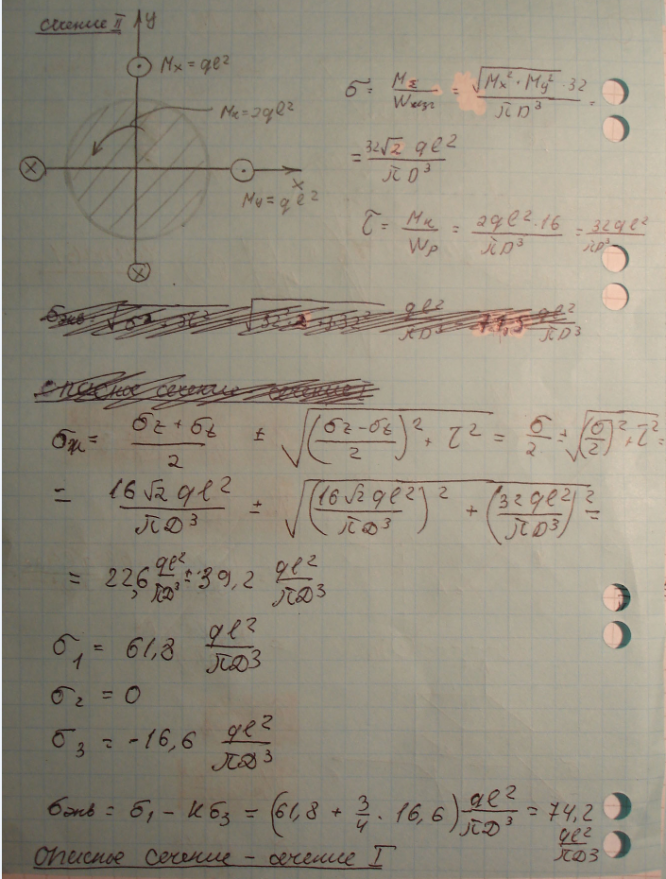 сечение II
y
Mx = ql²
Mк = 2ql²
x
My = ql²
σ = MΣ / Wизг = √(Mx² + My²) · 32 / πD³ =
= 32√2 ql² / πD³
τ = Mк / Wρ = 2ql² · 16 / πD³ = 32ql² / πD³
опасное сечение сечение I
= σ/2 ± √((σ/2)² + τ²) =
= 16√2 ql² / πD³ ± √((16√2 ql² / πD³)² + (32ql² / πD³)²) =
= 22,6 ql² / πD³ ± 39,2 ql² / πD³
σ₁ = 61,8 ql² / πD³
σ₂ = 0
σ₃ = -16,6 ql² / πD³
σэкв = σ₁ - kσ₃ = (61,8 + 3/4 · 16,6) ql² / πD³ = 74,2 ql² / πD³
опасное сечение - сечение I